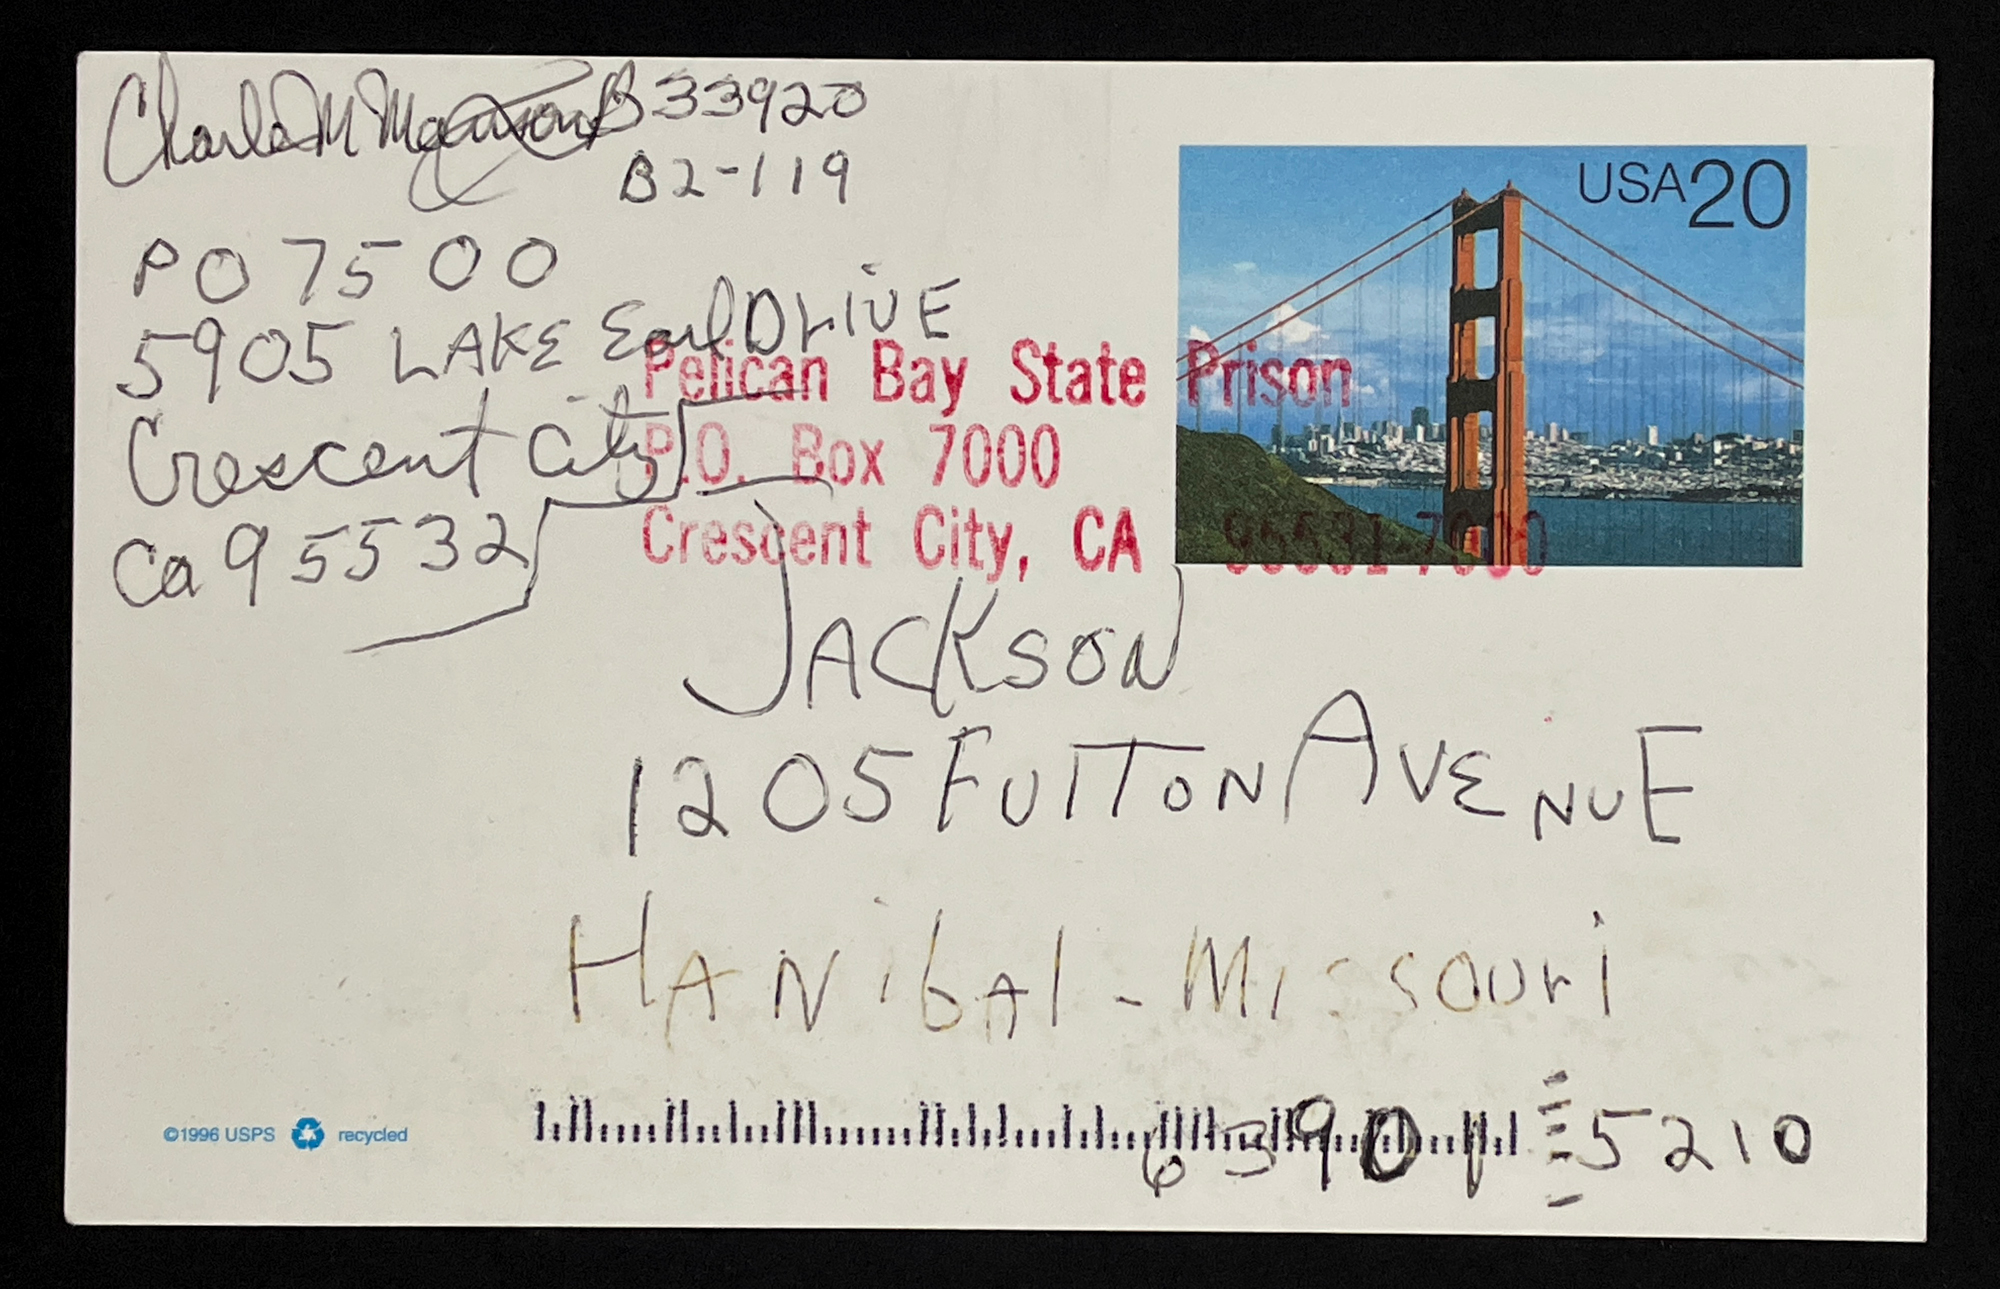 Charles M Manson B33920
B2-119
PO 7500
5905 LAKE Earl DriVE
Crescent City
Ca 95532
USA 20
Pelican Bay State Prison
P.O. Box 7000
Crescent City, CA 95531-7000
JACKSON
1205 FultoN AVENUE
HANibAl - Missouri
63901 5210
©1996 USPS recycled